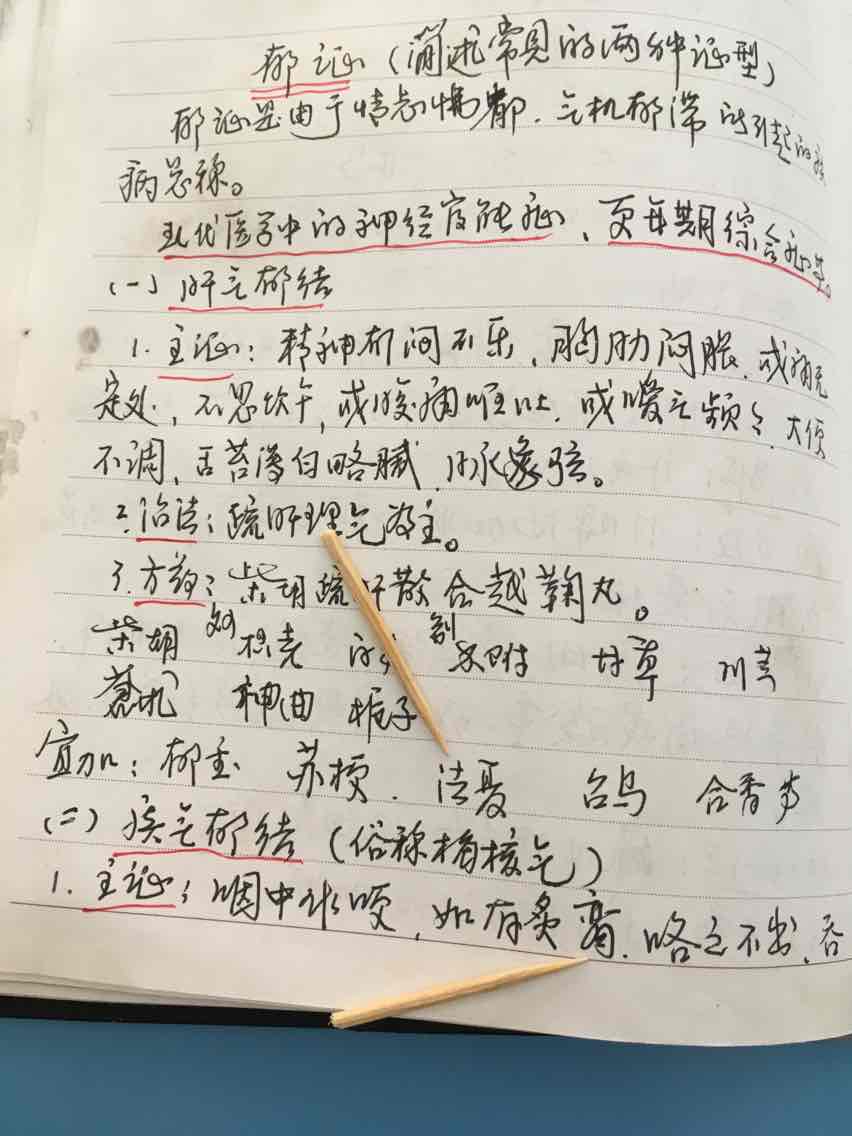 郁证（简述常见的两种证型）
郁证是由于情志惆郁．气机郁滞所引起的疾
病总称。
现代医学中的神经官能症、更年期综合症等。
（一）肝气郁结
1. 主证：精神郁闷不乐、胸肋闷胀．或痛无
定处，不思饮食，或腹痛呕吐．或嗳气频多．大便
不调，舌苔薄白略腻，脉象弦。
2. 治法：疏肝理气为主。
3. 方药：柴胡疏肝散合越鞠丸。
柴胡 枳壳 香附 甘草 川芎
苍术 神曲 栀子
宜加：郁金 苏梗． 法夏 台乌 合香等
（二）痰气郁结（俗称梅核气）
1. 主证：咽中作哽，如有炙脔．咯之不出、吞